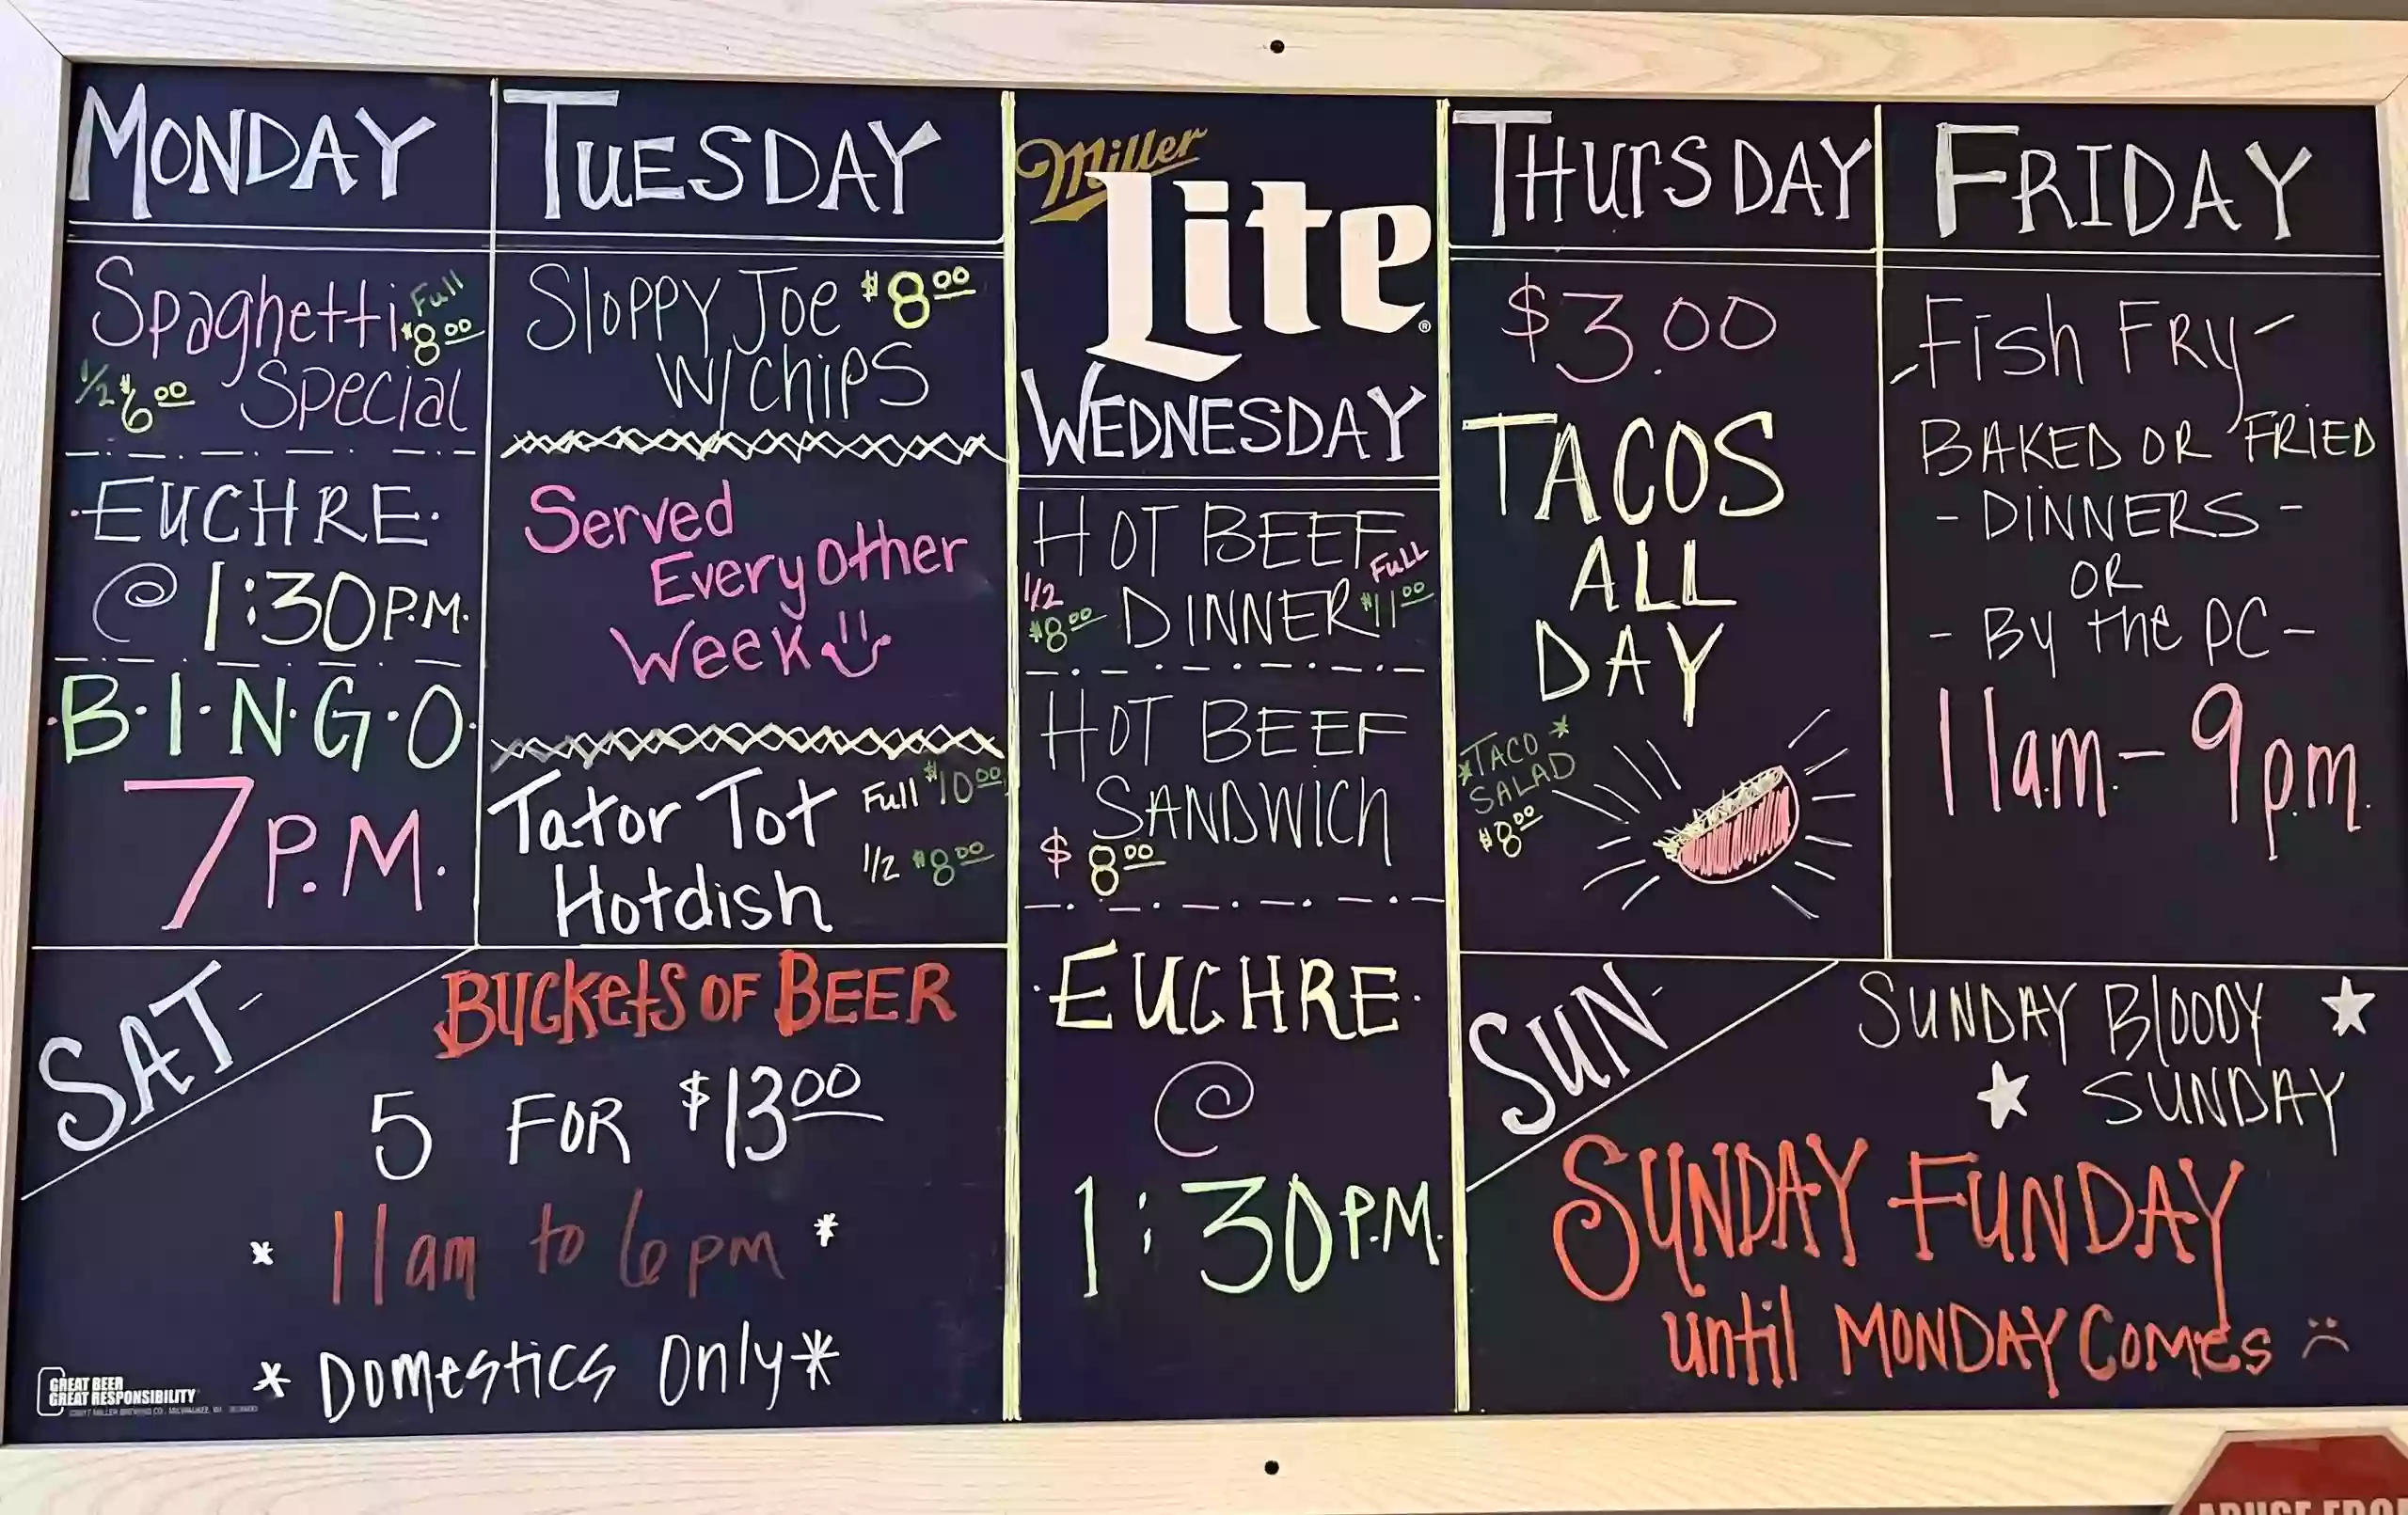 MONDAY
Spaghetti Full $8.00
1/2 $6.00 Special
·EUCHRE·
@ 1:30 P.M.
·B·I·N·G·O·
7 P.M.
TUESDAY
Sloppy Joe $8.00
W/Chips
Served
Every Other
Week
Tator Tot Full $10.00
Hotdish 1/2 $8.00
Miller
Lite®
WEDNESDAY
HOT BEEF
1/2 $8.00 DINNER FULL $11.00
HOT BEEF
SANDWICH
$8.00
·EUCHRE·
@
1:30 P.M.
THURSDAY
$3.00
TACOS
ALL
DAY
*TACO*
SALAD
$8.00
FRIDAY
-Fish FRY-
BAKED OR FRIED
-DINNERS-
OR
-By the PC-
11am.-9pm.
SAT-
BUCKEtS OF BEER
5 FOR $13.00
* 11am to 6pm *
* Domestics Only *
GREAT BEER
GREAT RESPONSIBILITY
SUN-
SUNDAY BLOODY
SUNDAY
SUNDAY FUNDAY
until MONDAY COMes :(